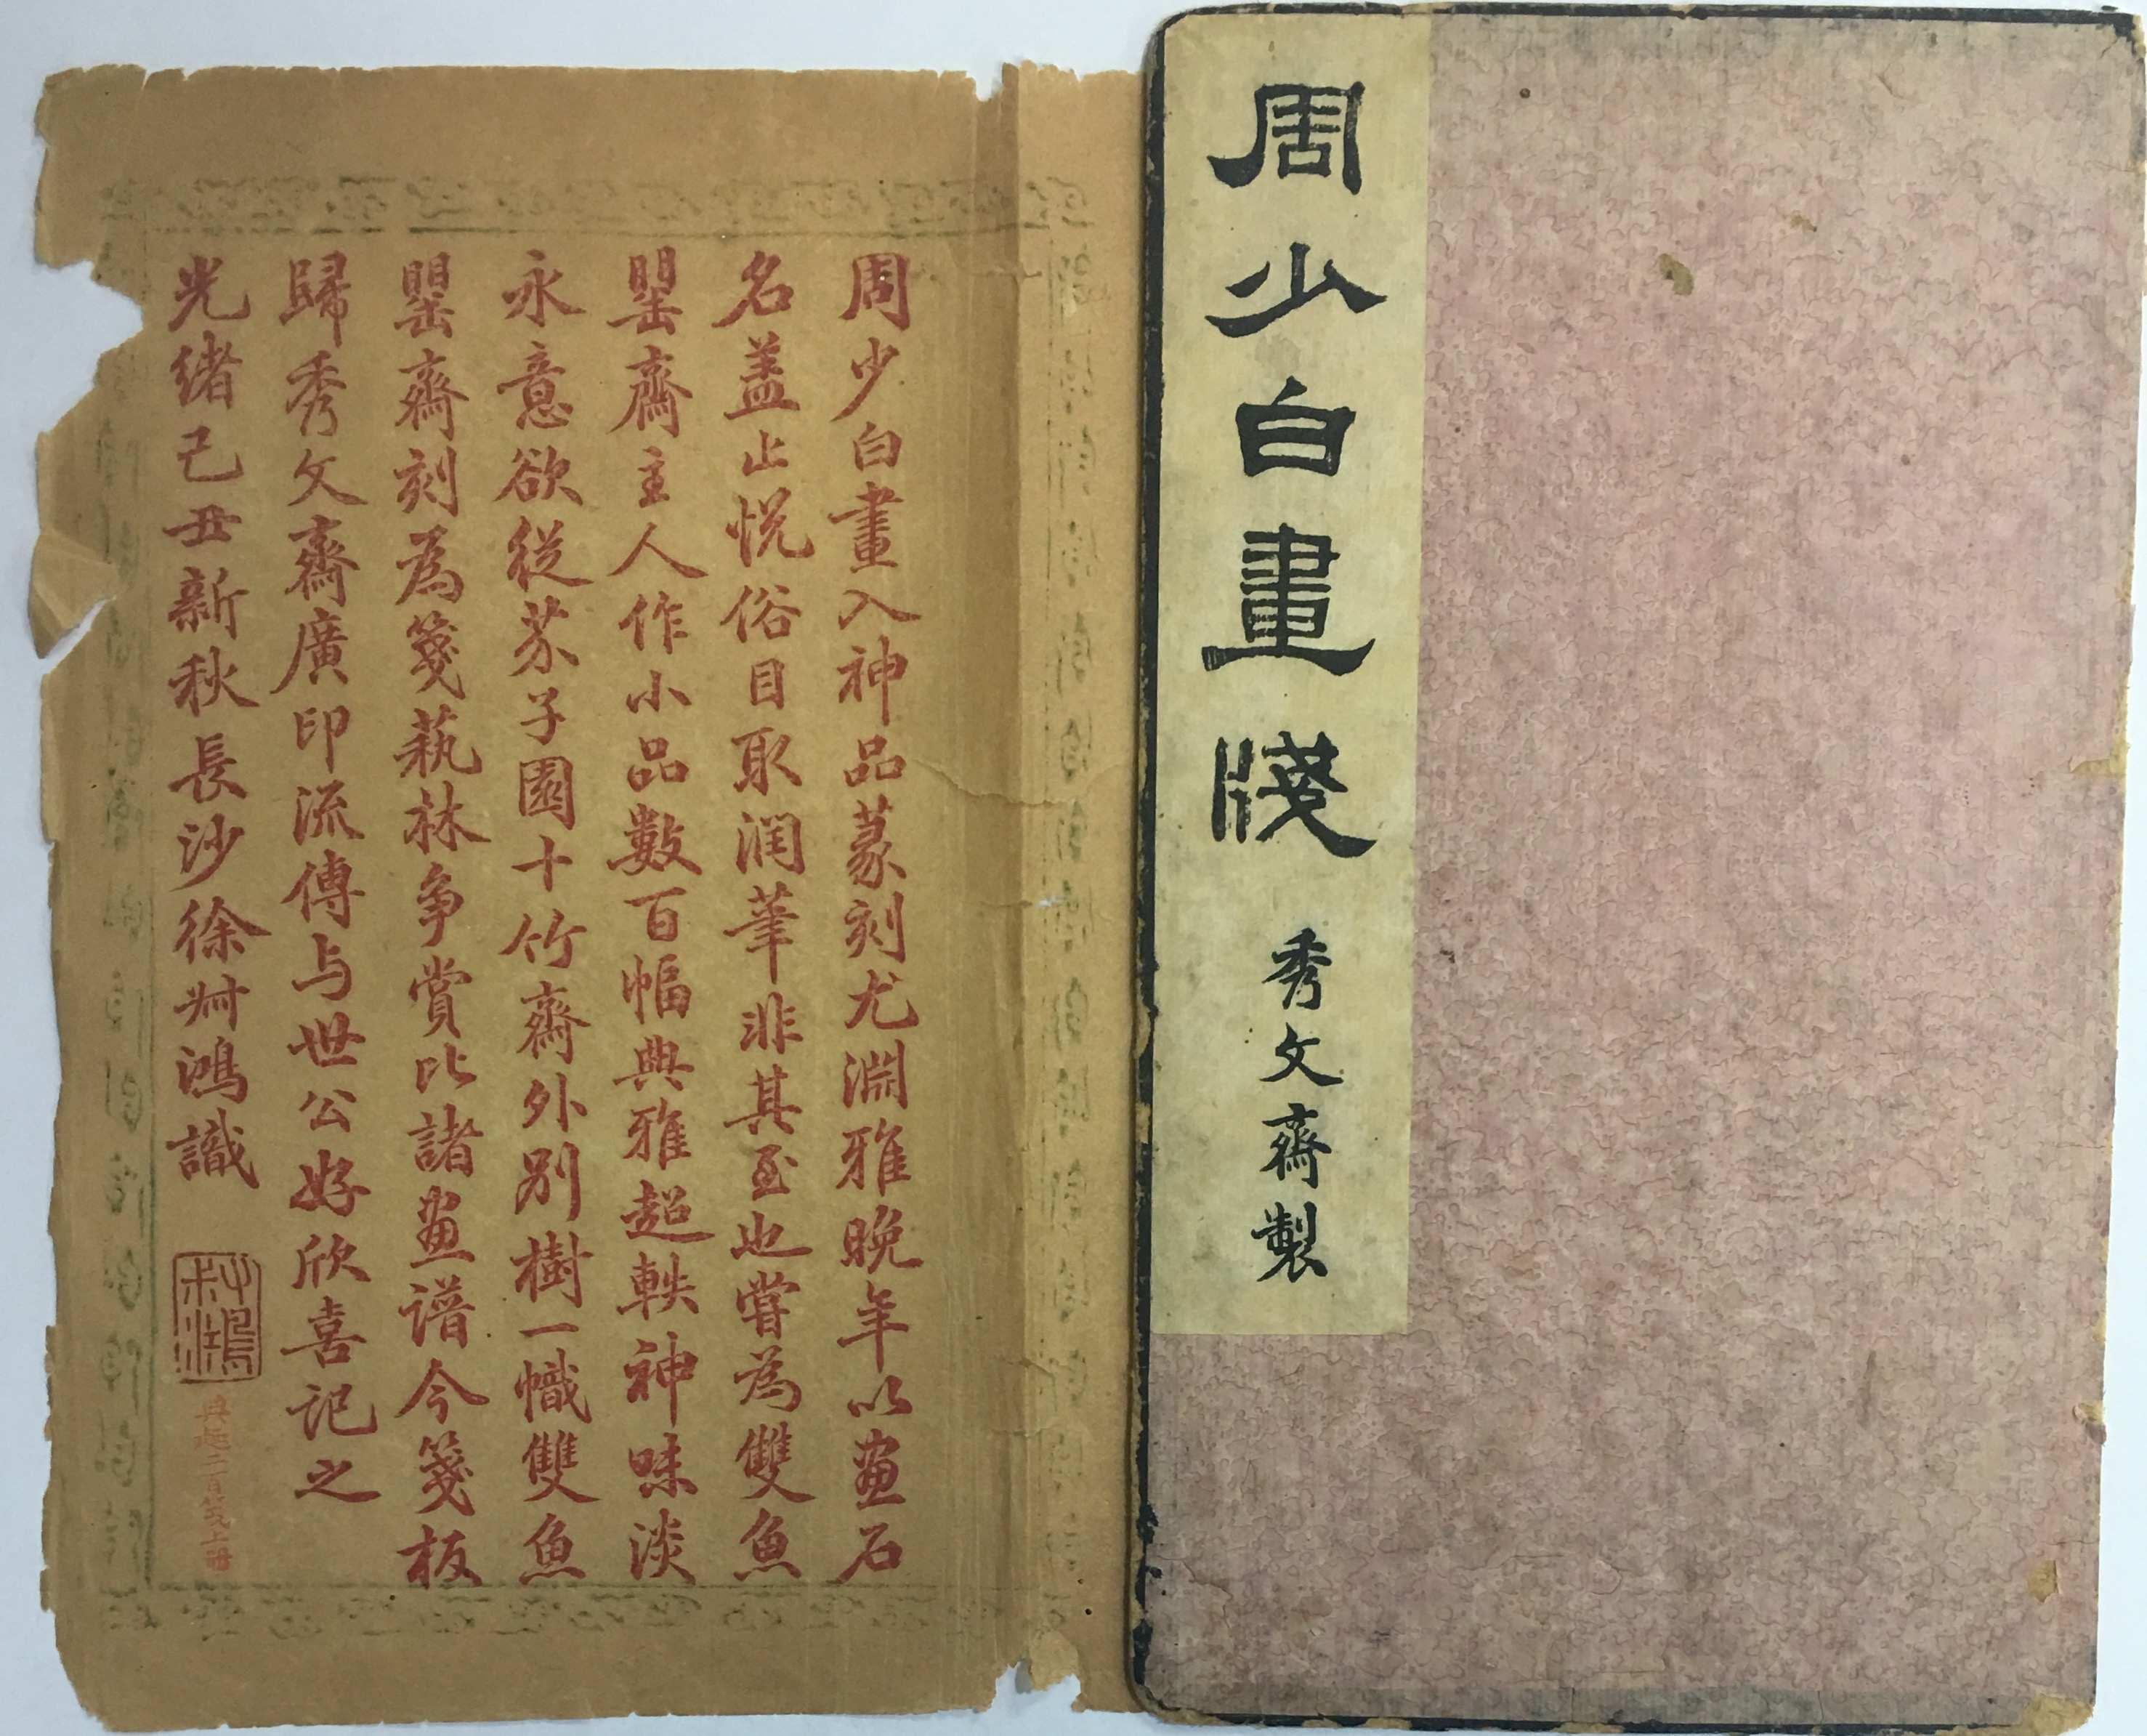 周少白畫牋
秀文齋製
周少白畫入神品篆刻尤淵雅晚年以畫石
名蓋止悅俗目取潤筆非其至也嘗為雙魚
罌齋主人作小品數百幅典雅超軼神味淡
永意欲從芥子園十竹齋外別樹一幟雙魚
罌齋刻為箋蓺林争賞比諸畫譜今箋板
歸秀文齋廣印流傳与世公好欣喜記之
光緒己丑新秋長沙徐尗鴻識
尗鴻